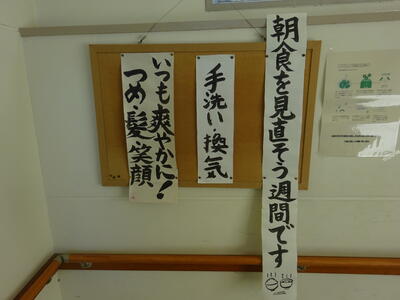 朝食を見直そう週間です
手洗い・換気
いつも爽やかに!
つめ・髪・笑顔